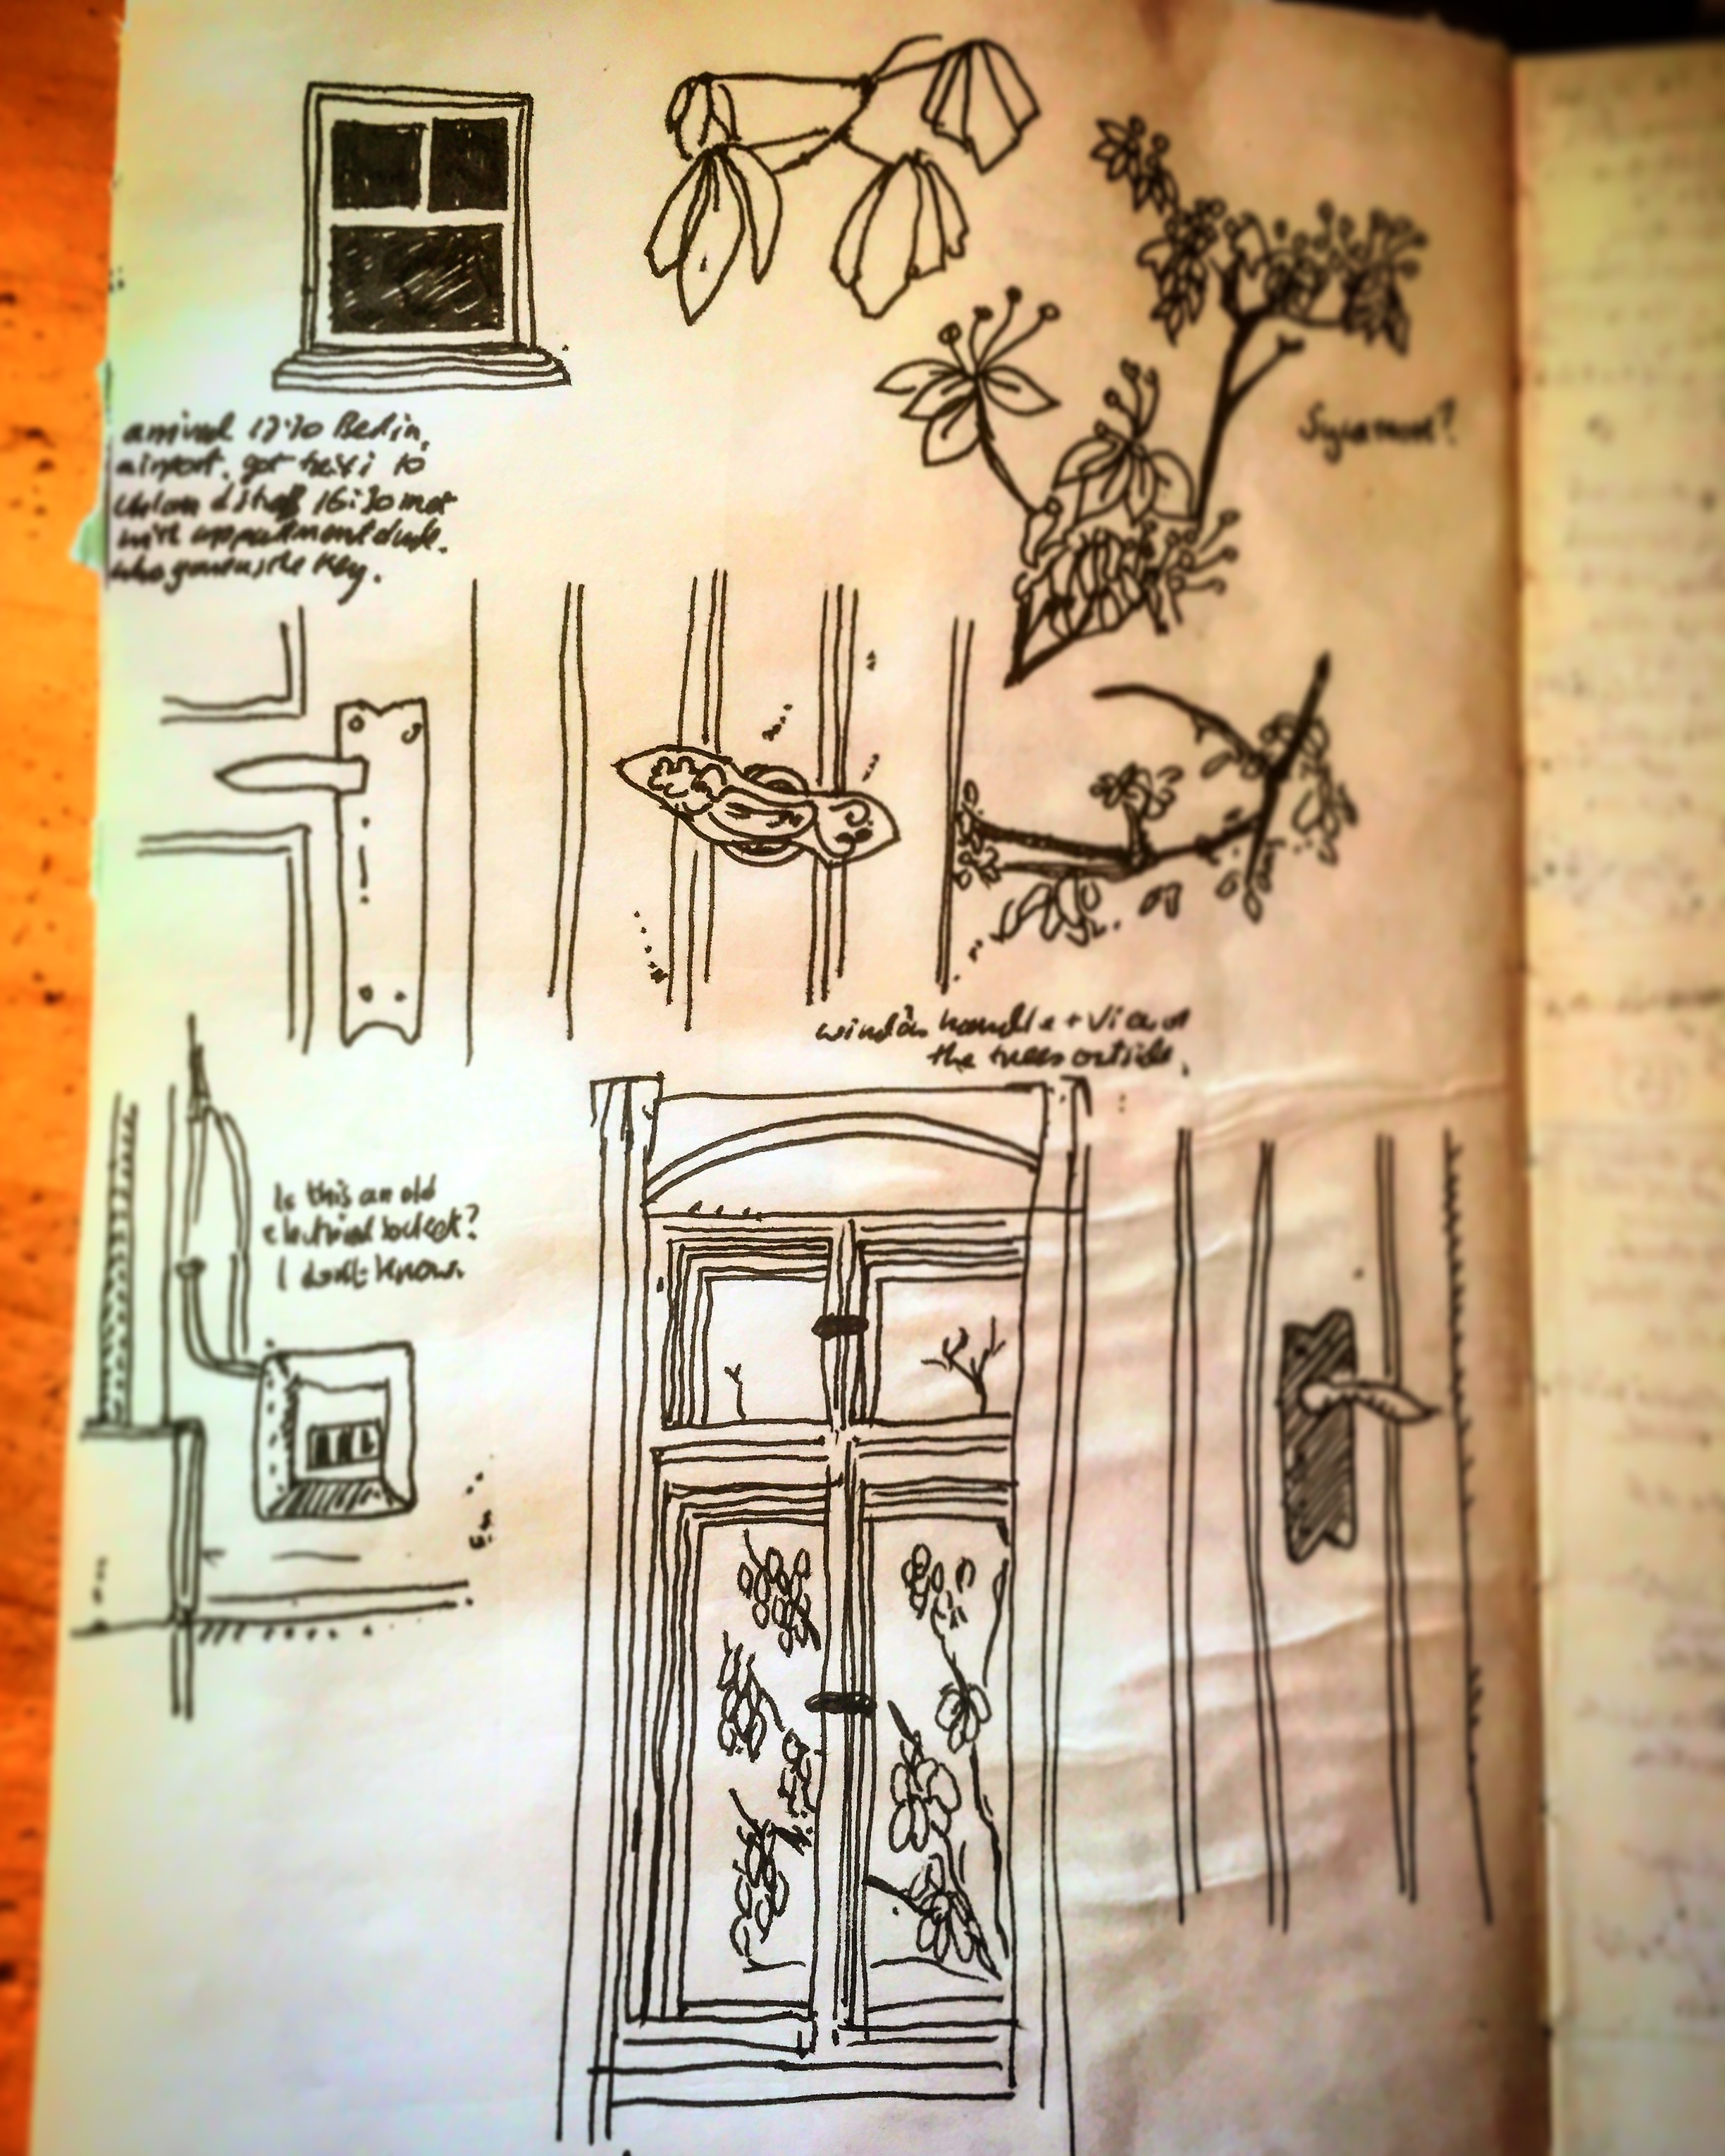 arrived 17:30 Berlin,
airport. got taxi to
16:30 met
with appartment dude.
who gave us the key.
Sycamore?
window handle + view of
the trees outside.
Is this an old
electrical socket?
I don't know.